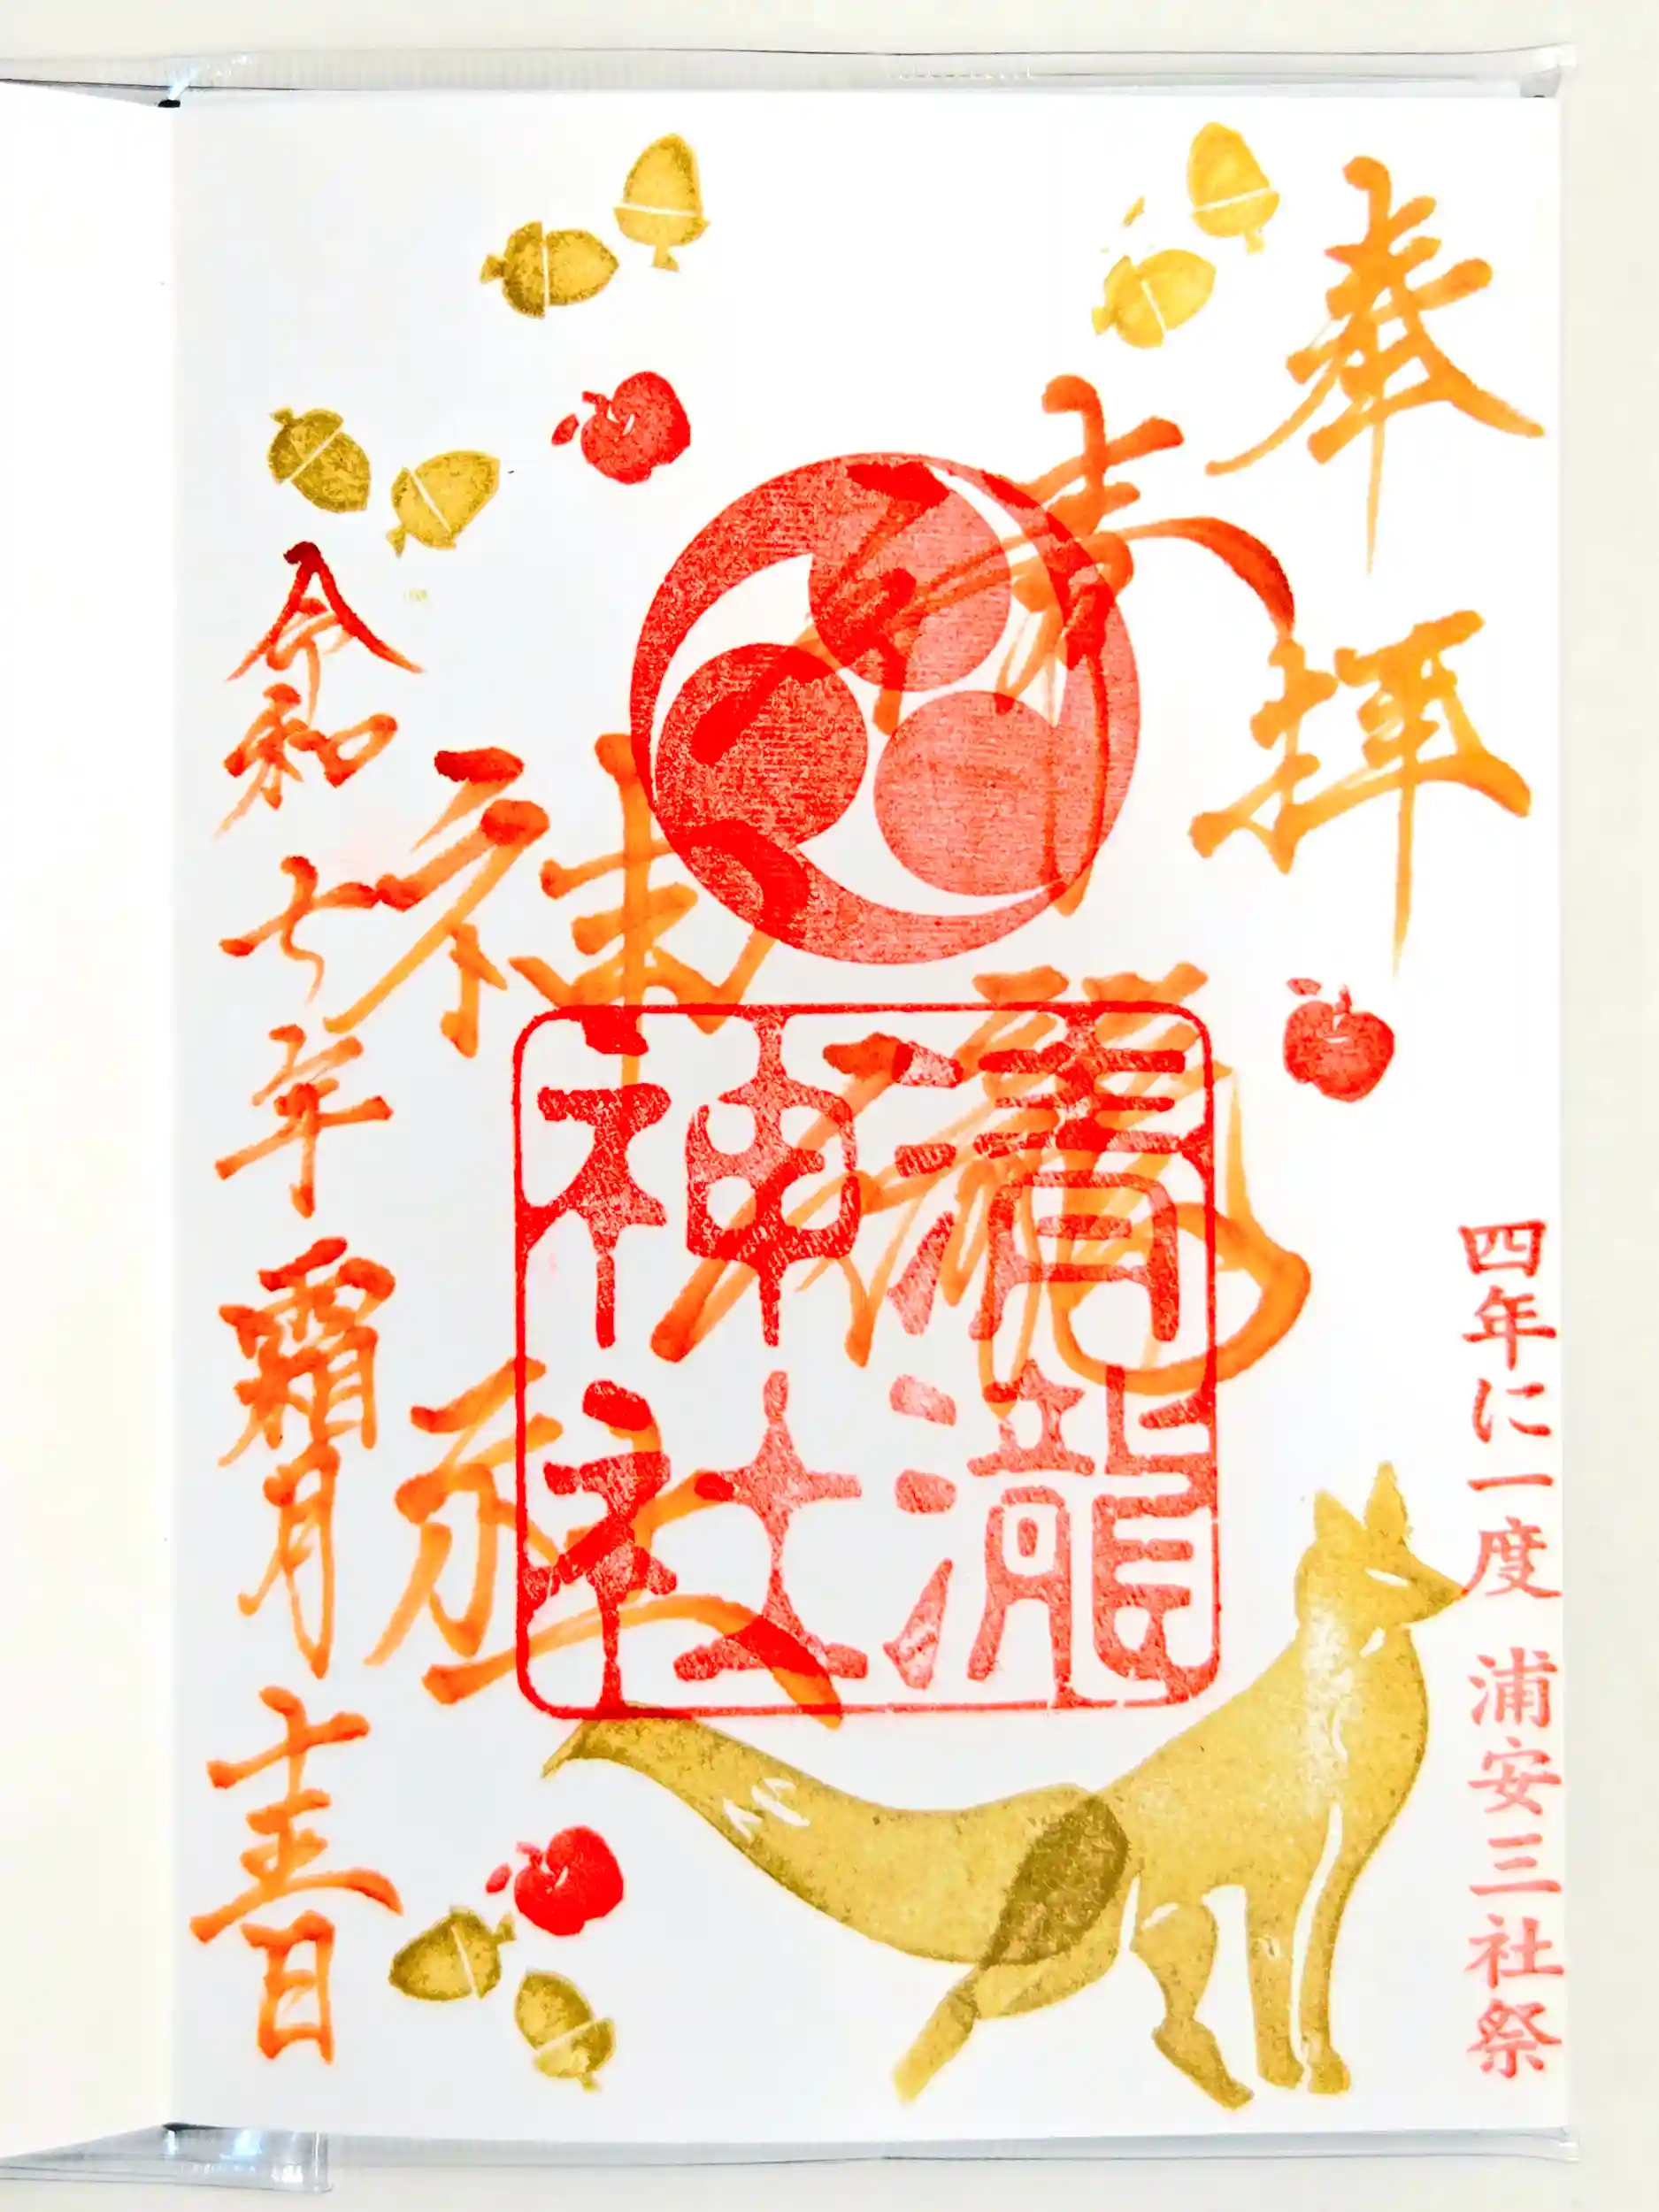 奉拝
四年に一度 浦安三社祭
清瀧
神社
清瀧
神社
令和七年霜月十 日